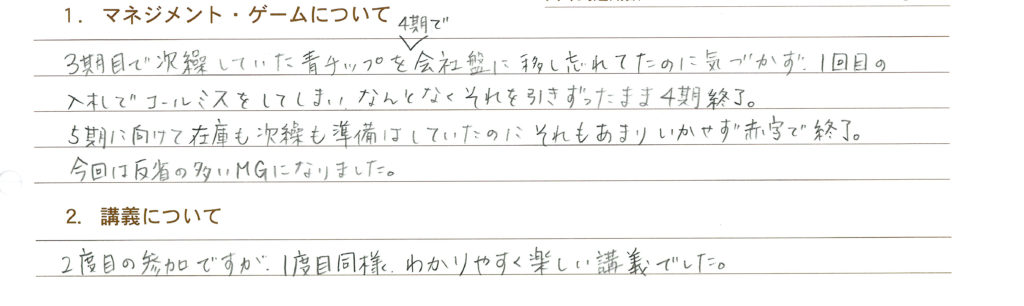 1. マネジメント・ゲームについて
4期で
3期目で次繰していた青チップを会社盤に移し忘れてたのに気づかず、1回目の
入札でコールミスをしてしまい、なんとなくそれを引きずったまま4期終了。
5期に向けて在庫も次繰も準備はしていたのにそれもあまりいかせず赤字で終了。
今回は反省の多いMGになりました。
2. 講義について
2度目の参加ですが、1度目同様、わかりやすく楽しい講義でした。